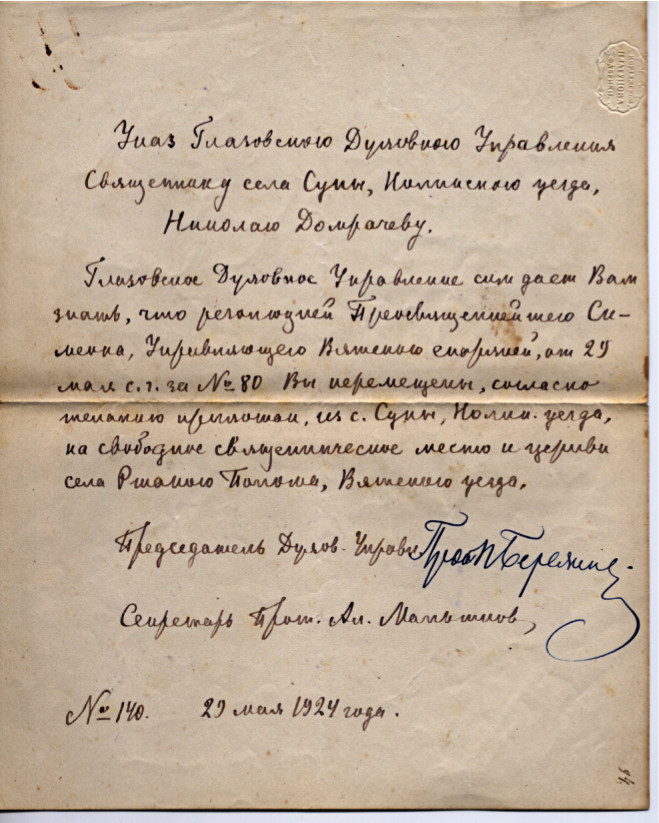 Указ Глазовского Духовного Управления
Священнику села Суны, Нолинского уезда,
Николаю Домрачеву.
Глазовское Духовное Управление сим дает Вам
знать, что резолюцией Преосвященнейшего Си-
меона, Управляющего Вятскою епархией, от 29
мая с.г. за № 80 Вы перемещены, согласно
желанию прихожан, из с. Суны, Нолин. уезда,
на свободное священническое место к церкви
села Ржаного Полома, Вятского уезда.
Председатель Духов. Управл. Прот.
Секретарь Прот. Ал.
№ 140. 29 мая 1924 года.
94